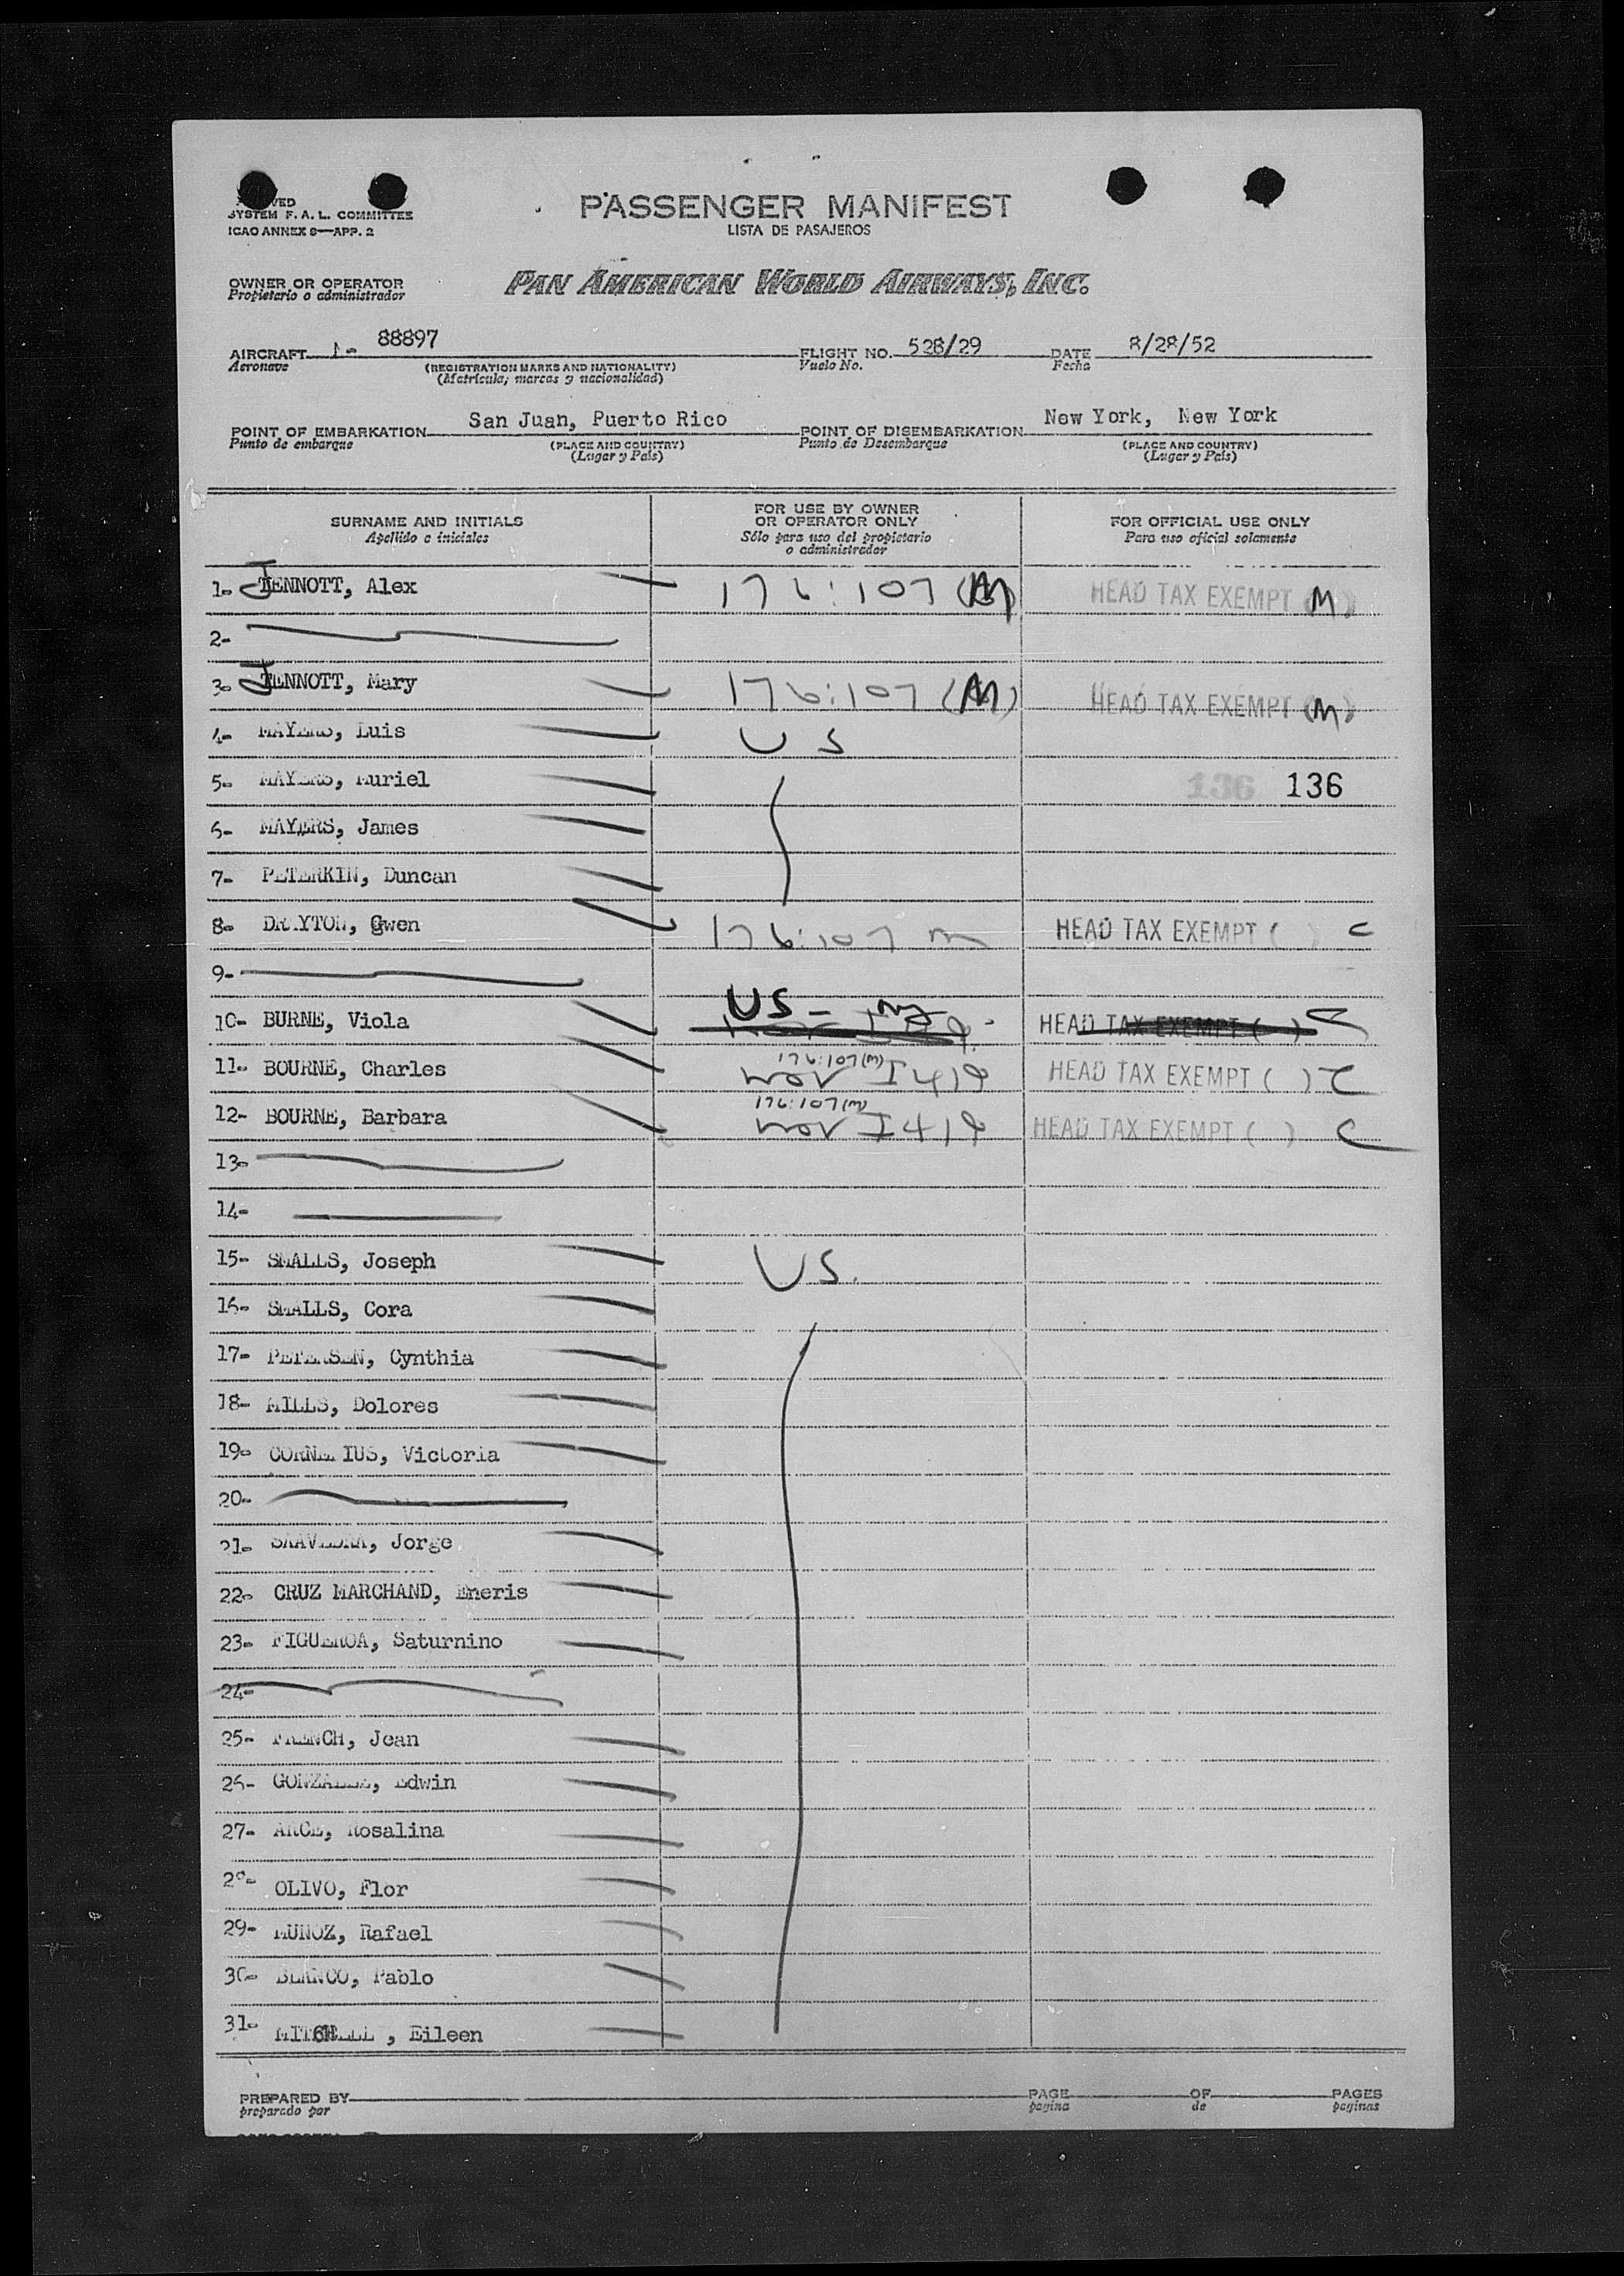 SYSTEM F. A. L. COMMITTEE
ICAO ANNEX 9—APP. 2
PASSENGER MANIFEST
LISTA DE PASAJEROS
OWNER OR OPERATOR
Propietario o administrador
PAN AMERICAN WORLD AIRWAYS, INC.
AIRCRAFT 88897 FLIGHT NO. 528/29 DATE 8/28/52
Aeronave (REGISTRATION MARKS AND NATIONALITY) Vuelo No. Fecha
(Matrícula, marcas y nacionalidad)
POINT OF EMBARKATION San Juan, Puerto Rico POINT OF DISEMBARKATION New York, New York
Punto de embarque (PLACE AND COUNTRY) Punto de Desembarque (PLACE AND COUNTRY)
(Lugar y País) (Lugar y País)
SURNAME AND INITIALS FOR USE BY OWNER OR OPERATOR ONLY FOR OFFICIAL USE ONLY
Apellido e iniciales Sólo para uso del propietario o administrador Para uso oficial solamente
1- JENNOTT, Alex 176:107 (M) HEAD TAX EXEMPT (M)
2-
3- JENNOTT, Mary 176:107 (M) HEAD TAX EXEMPT (M)
4- MAYERS, Luis US
5- MAYERS, Muriel 136 136
6- MAYERS, James
7- PETERKIN, Duncan
8- DRAYTON, Gwen 176:107 m HEAD TAX EXEMPT ( ) C
9-
10- BURNE, Viola US - HEAD TAX EXEMPT ( ) C
11- BOURNE, Charles 176:107(m) I 419 HEAD TAX EXEMPT ( ) C
12- BOURNE, Barbara 176:107(m) I 419 HEAD TAX EXEMPT ( ) C
13-
14-
15- SMALLS, Joseph US.
16- SMALLS, Cora
17- PETERSEN, Cynthia
18- MILLS, Dolores
19- CORNELIUS, Victoria
20-
21- SAAVEDRA, Jorge
22- CRUZ MARCHAND, Eneris
23- FIGUEROA, Saturnino
24-
25- FRENCH, Jean
26- GONZALEZ, Edwin
27- ARCE, Rosalina
28- OLIVO, Flor
29- MUNOZ, Rafael
30- BLANCO, Pablo
31- MITCHELL, Eileen
PREPARED BY PAGE OF PAGES
preparado por pagina de paginas